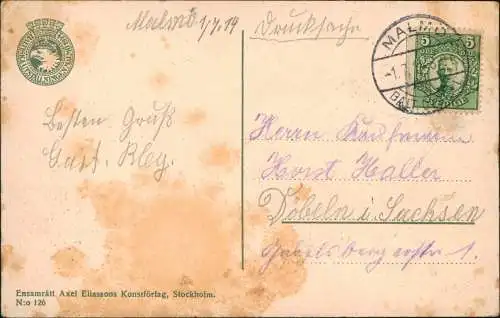 Malmö 1/7.14
Drucksache
MALMÖ
-1.7
5 5
Besten Gruß
Gust. Kley.
Herrn Kaufmann
Horst Haller
Döbeln i. Sachsen
1.
Ensamrätt Axel Eliassons Konstförlag, Stockholm.
N:o 126